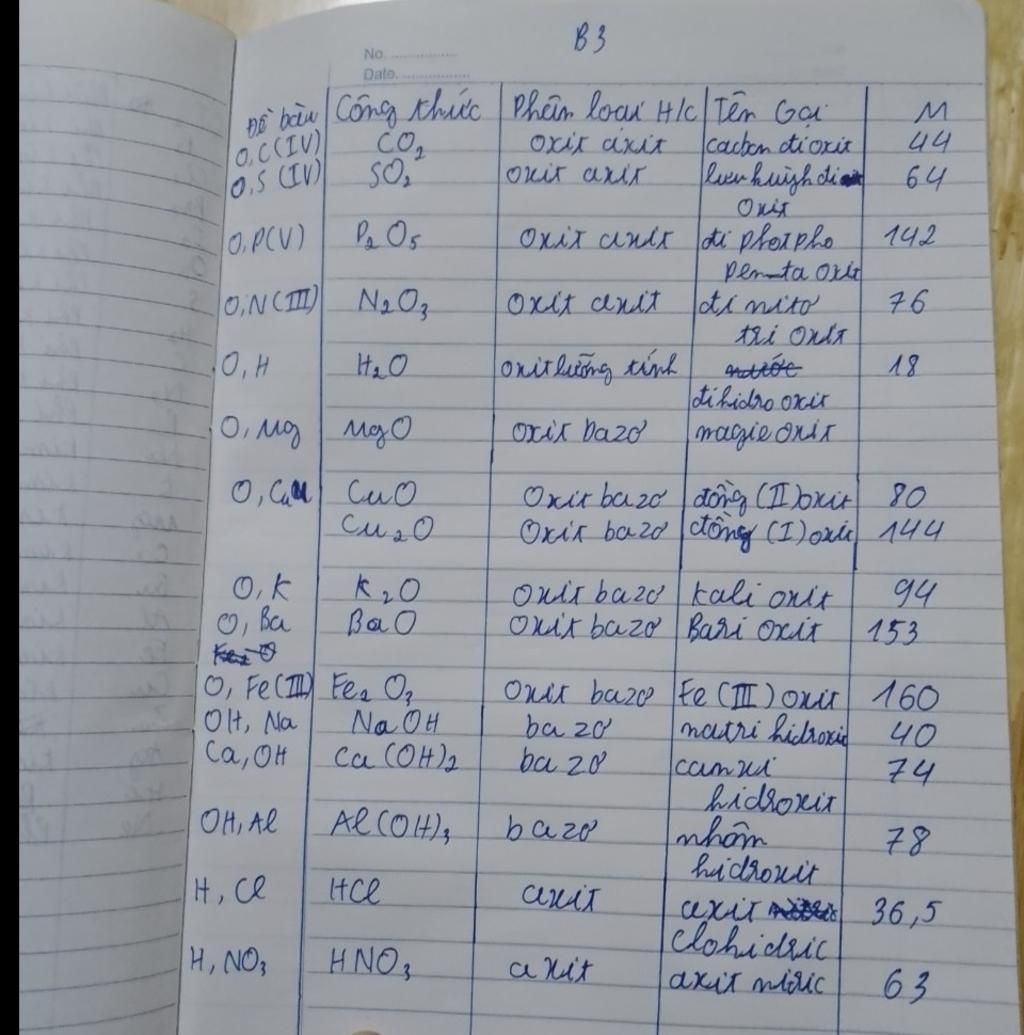 B3
No.
Date.
Đề bài Công thức Phân loại H/C Tên Gọi M
O,C(IV) CO2 Oxit axit cacbon đioxit 44
O,S (IV) SO2 Oxit axit lưu huỳnh đi 64
Oxit
O,P(V) P2O5 Oxit axit đi photpho 142
penta oxit
O,N(III) N2O3 Oxit axit đi nitơ 76
tri oxit
O,H H2O oxit lưỡng tính nước 18
đihidro oxit
O,Mg MgO Oxit bazơ magie oxit
O,Cu CuO Oxit bazơ đồng (II) oxit 80
Cu2O Oxit bazơ đồng (I) oxit 144
O,K K2O Oxit bazơ Kali oxit 94
O,Ba BaO Oxit bazơ Bari oxit 153
O,Fe(III) Fe2O3 Oxit bazơ Fe (III) oxit 160
OH, Na NaOH bazơ natri hidroxit 40
Ca,OH Ca(OH)2 bazơ canxi 74
hidroxit
OH,Al Al(OH)3 bazơ nhôm 78
hidroxit
H,Cl HCl axit axit 36,5
Clohidric
H,NO3 HNO3 axit axit nitric 63